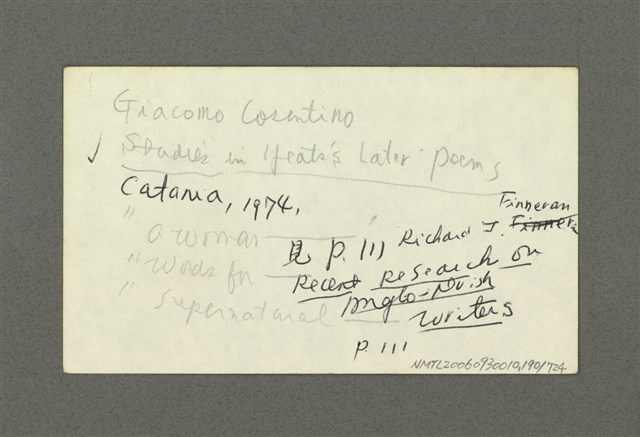 Giacomo Cosentino
✓ Studies in Yeats's Later Poems
Catania, 1974,
" A Woman ——— "
" Words for ———
" Supernatural ———
見 P. 111 Richard J. Finneran
Recent Research on
Anglo-Irish
Writers
P. 111
NMTL20060930010,190/724